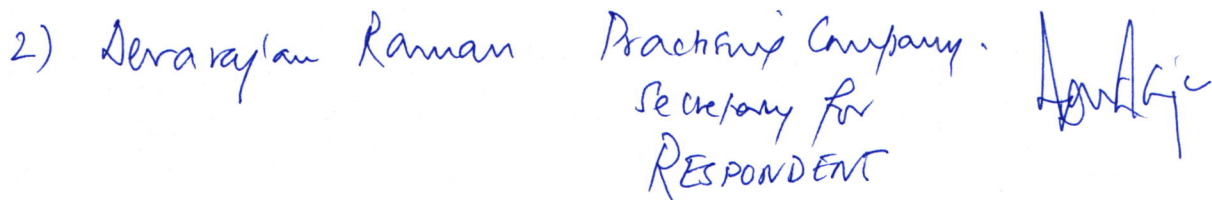 2) Devarajan Raman Practising Company.
Secretary for
RESPONDENT